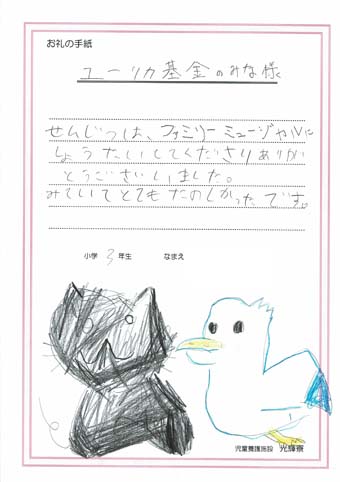 お礼の手紙
ユーリカ基金のみな様
せんじつは、ファミリーミュージカルに
しょうたいしてくださりありが
とうございました。
みていてとてもたのしかったです。
小学 3 年生 なまえ
児童養護施設 光輝寮